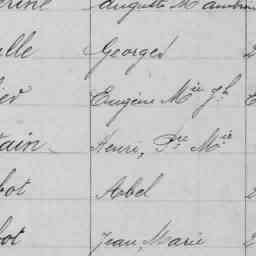 Auguste M
lle Georges 2
Eugène Mie Jh
tain Henri, Pre Mie
bot Abel 2
bot Jean, Marie 2